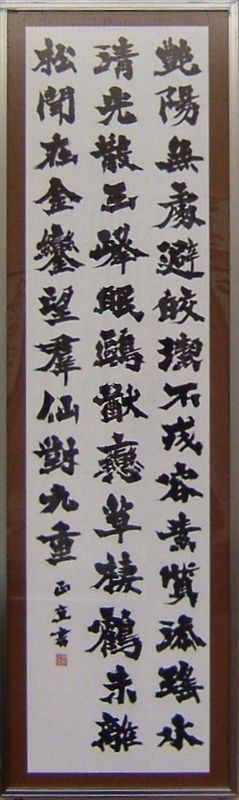 艷陽無處避皎潔不成容素質添瑤水
清光散玉峰眠鷗猷戀草棲鶴未離
松聞在金鑾望羣仙對九重
書